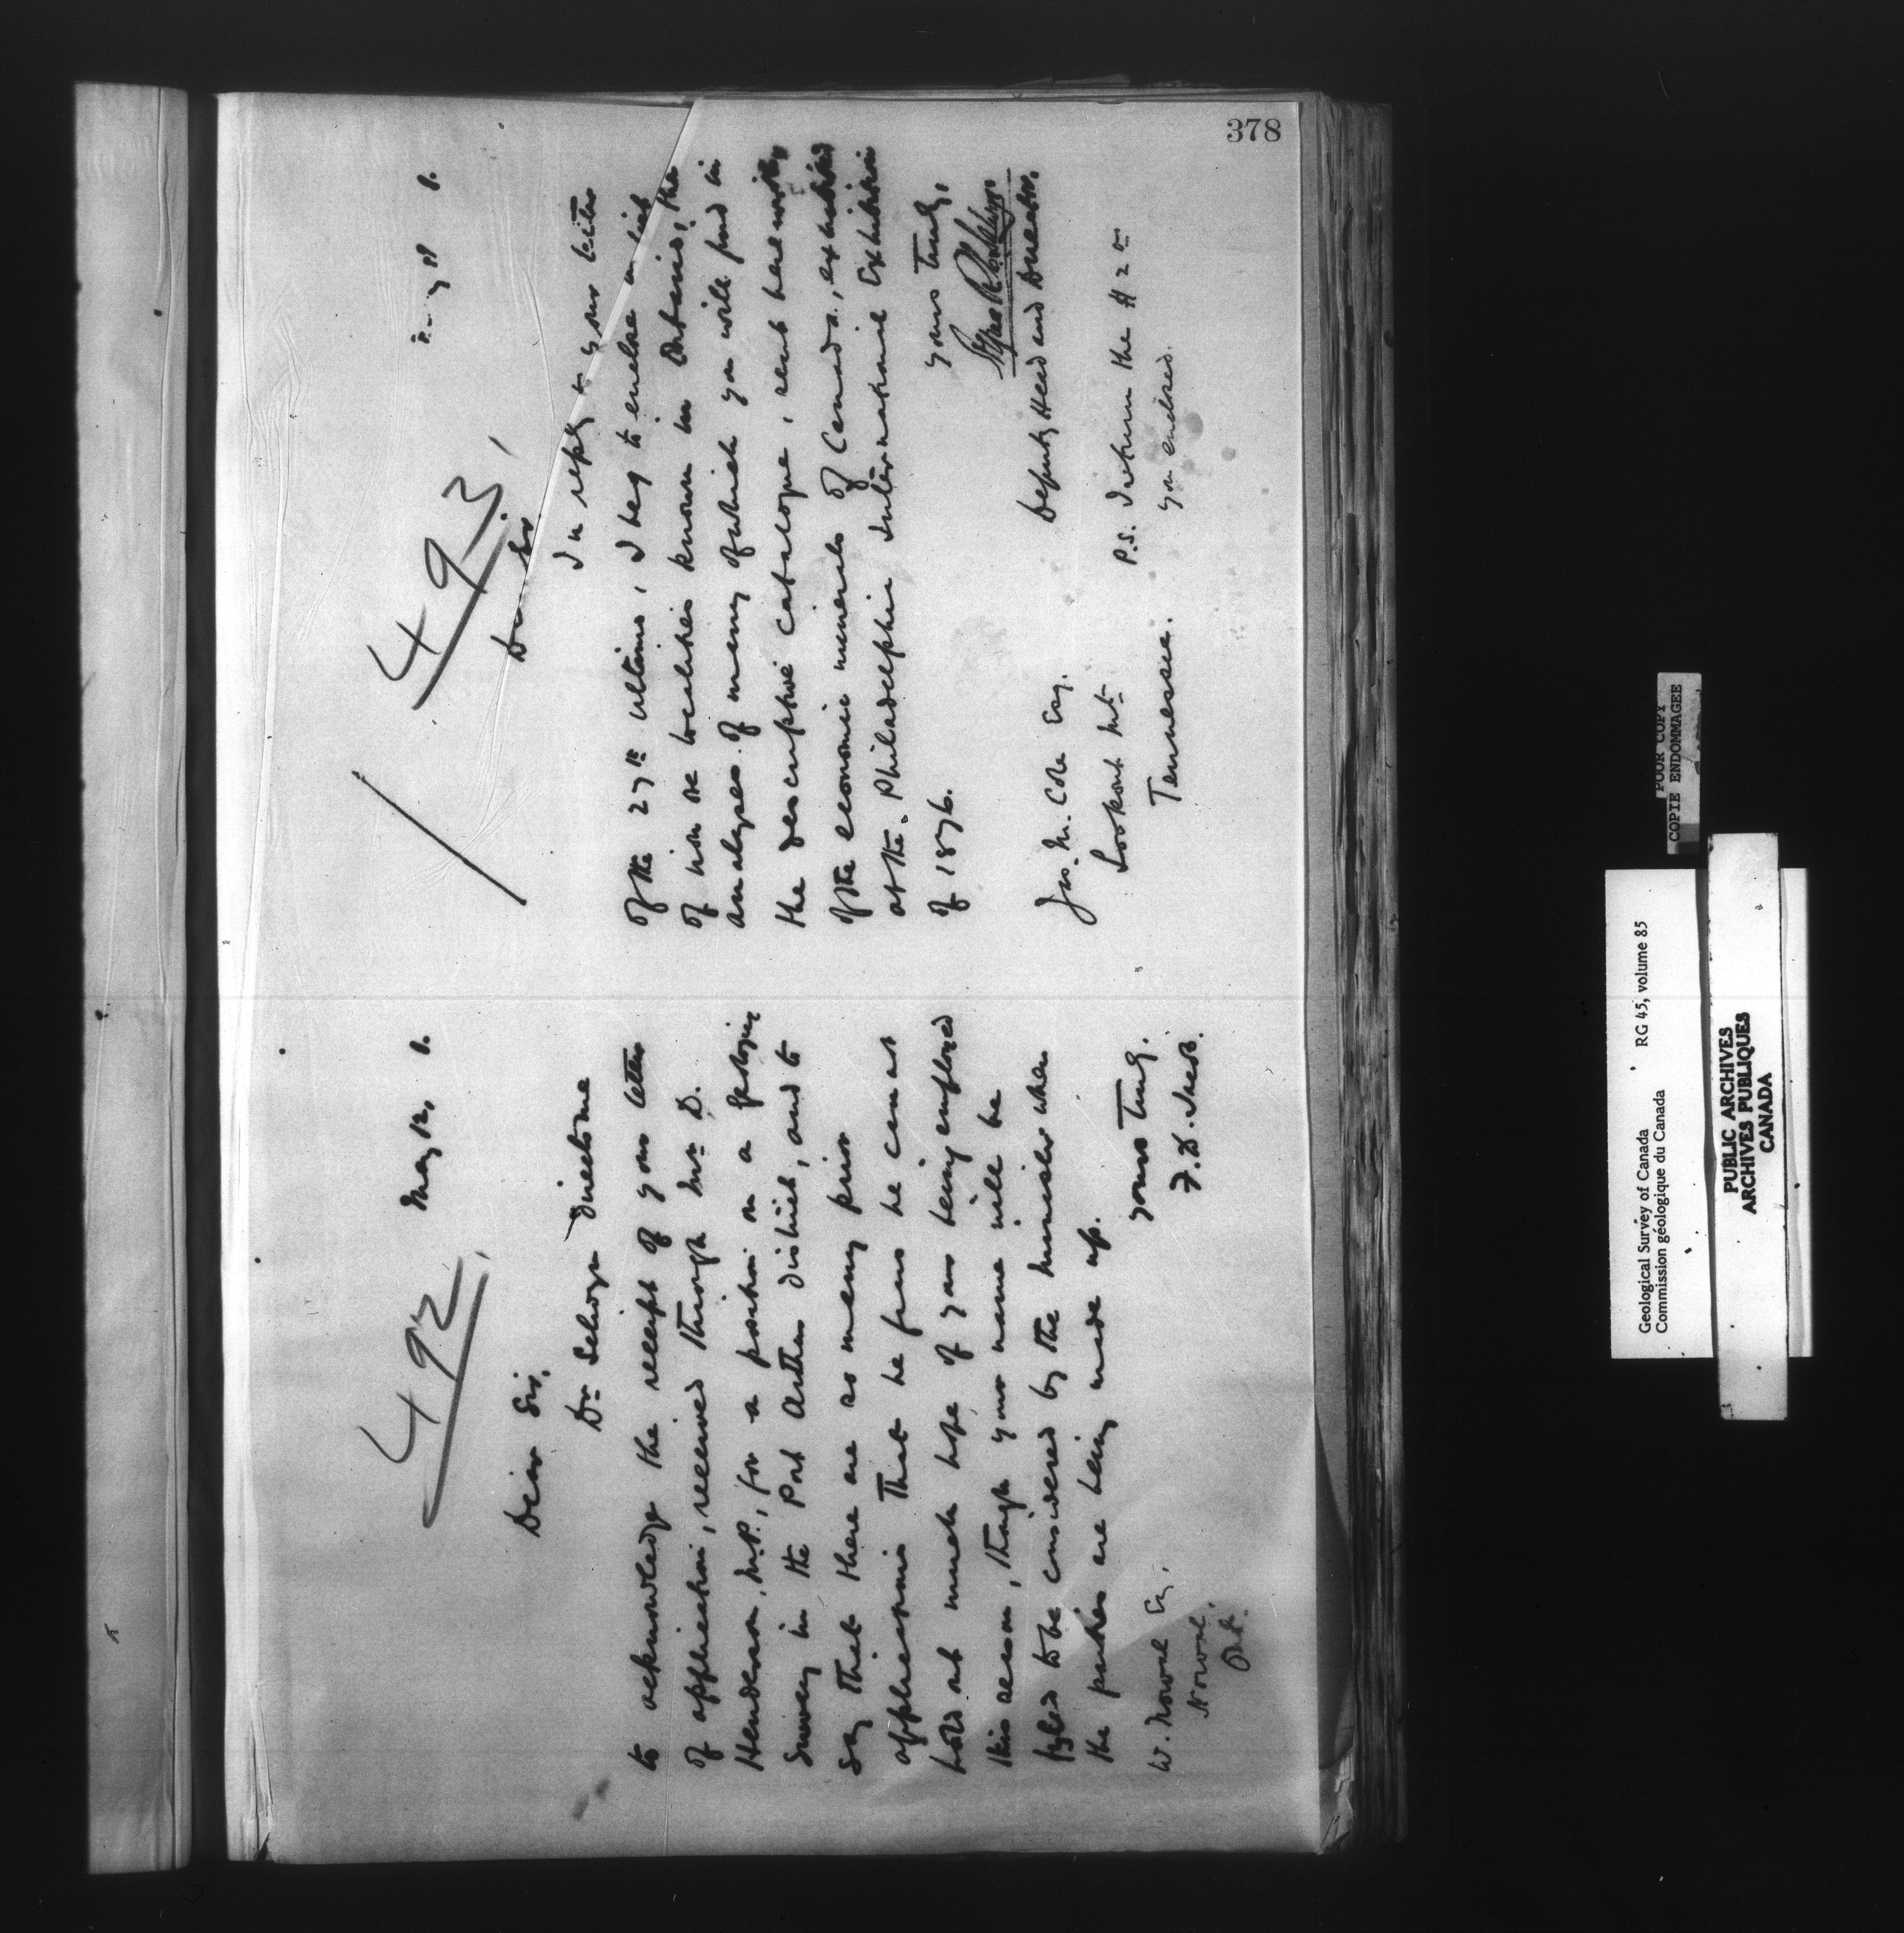 378
492
May 12, 8.
Dear Sir,
Dr. Selwyn directs me
to acknowledge the receipt of your letter
of application, received through Mr. D.
Henderson, M.P., for a position on a geological
survey in the Port Arthur district, and to
say that there are so many prior
applications that he fears he can not
hold out much hope of your being employed
this season, though your name will be
to be considered by the Minister when
the parties are being made up.
Yours truly.
W. Noval Esq.
Norval,
Ont.
493
8.
Dear Sir
In reply to your letter
of the 27th ultimo, I beg to enclose a list
of iron ore localities known in Ontario; the
analyses of many of which you will find in
the descriptive catalogue, sent herewith,
of the economic minerals of Canada, exhibited
at the Philadelphia International Exhibition
of 1876.
Yours truly,
Deputy Head and Director.
Jno. M. Cole Esq.
Lookout Mt.
Tennessee.
P.S. I return the
you enclosed.
POOR COPY
COPIE ENDOMMAGEE
Geological Survey of Canada RG 45, volume 85
Commission géologique du Canada
PUBLIC ARCHIVES
ARCHIVES PUBLIQUES
CANADA